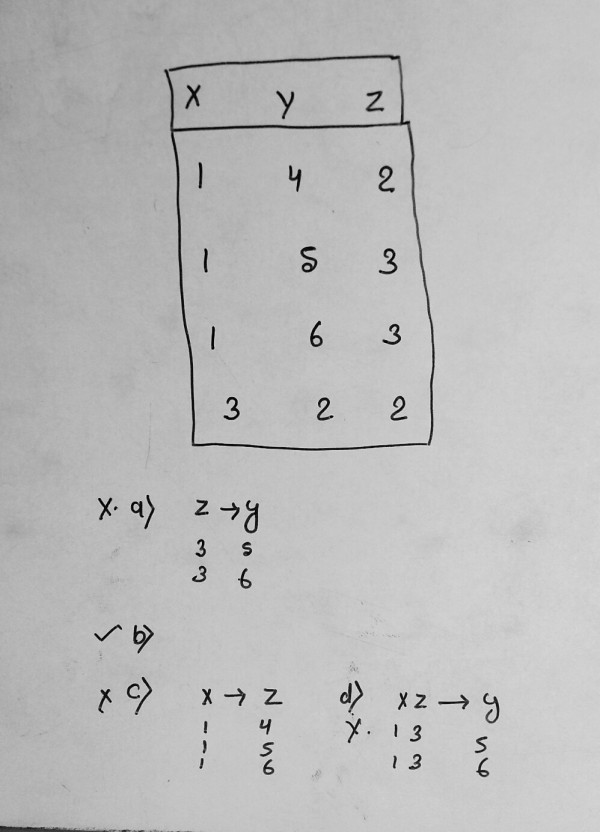 X Y Z
1 4 2
1 5 3
1 6 3
3 2 2
x. a) z → y
3 5
3 6
✓ b)
x c) x → z
1 4
1 5
1 6
d) xz → y
x. 1 3 5
1 3 6